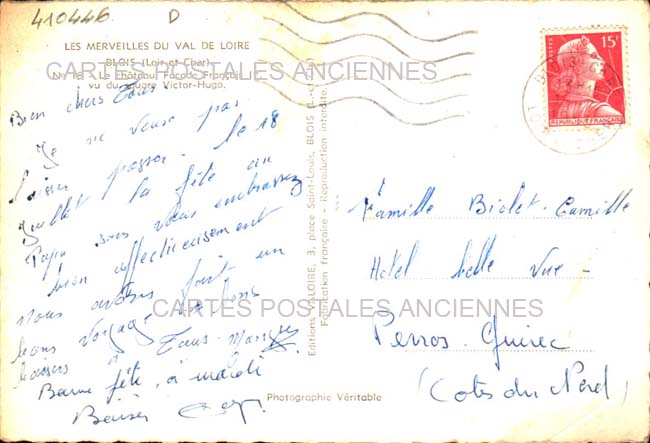 410446 D
LES MERVEILLES DU VAL DE LOIRE
BLOIS (Loir-et-Cher)
CARTES POSTALES ANCIENNES
Le Château, Façade François
vu du square Victor-Hugo.
Bien chers Tous
Je ne veux pas
laisser passer le 18
Juillet la fête au
Papa sans vous embrasser
bien affectueusement
nous avons fait un
bons voyage
baisers Tous
Bonne fête, à mardi
Baisers
Editions VALOIRE, 3, place Saint-Louis, BLOIS
Fabrication française - Reproduction interdite.
CARTES POSTALES ANCIENNES
Photographie Véritable
POSTES 15F
REPUBLIQUE FRANÇAISE
Famille Biolet-Camille
Hotel belle vue -
Perros-Guirec
(Cotes du Nord)